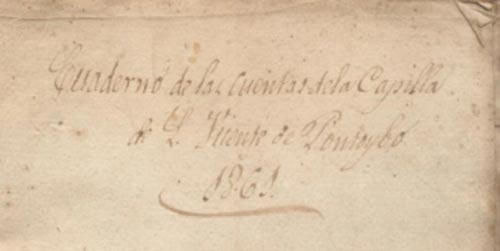 Cuaderno de las cuentas de la Capilla
de S. Visente de
1861.